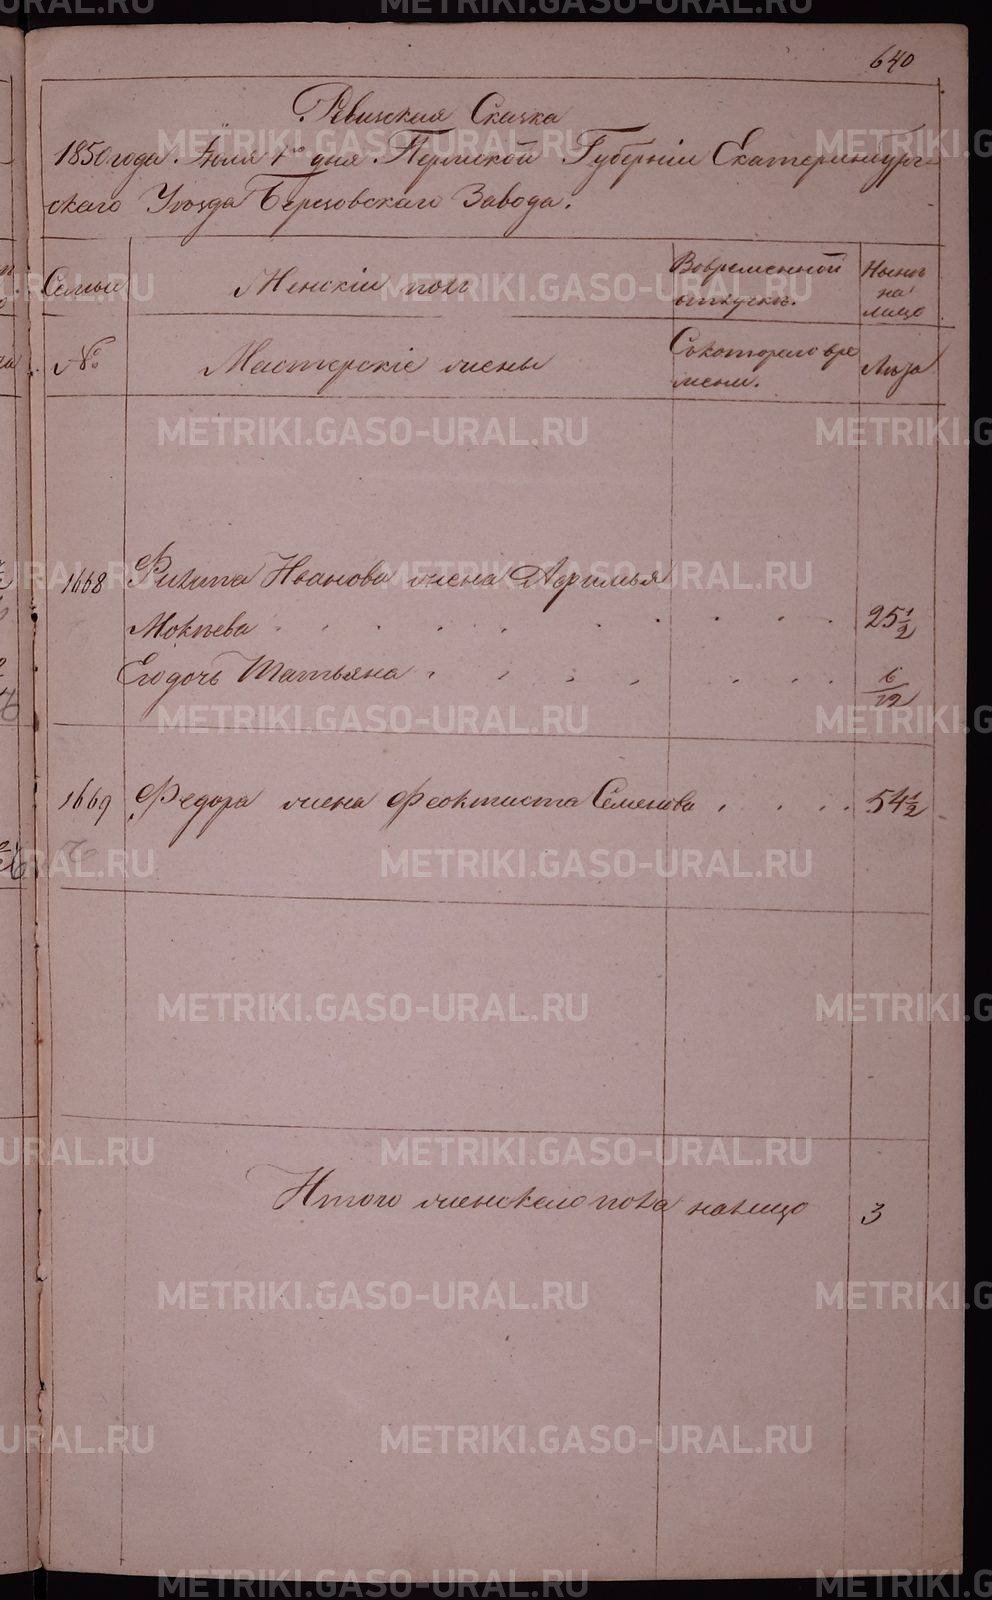 640
Ревизская Сказка
1850 года Іюля 1го дня Пермской Губерніи Екатеринбург=
скаго Уѣзда Березовскаго Завода.
Семьи Женскій полъ Во временной отлучкѣ. Нынѣ на лицо
№ Мастерскіе жены Съ котораго вре мени. Лѣта
1668 Филипа Иванова жена Афимья
Мокѣева 25 1/2
Его дочь Татьяна 6/12
1669 Федора жена Феоктиста Семенова 54 1/2
Итого женскаго пола налицо 3
METRIKI.GASO-URAL.RU